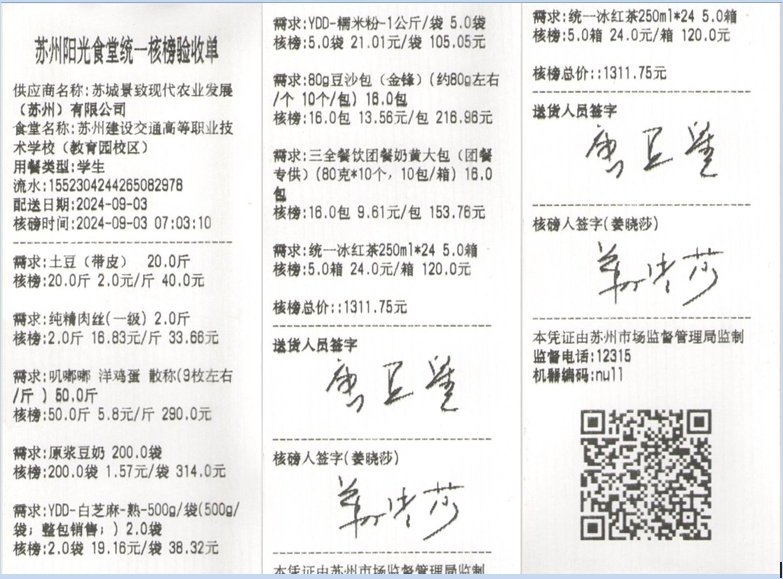 苏州阳光食堂统一核榜验收单
供应商名称:苏城景致现代农业发展
（苏州）有限公司
食堂名称:苏州建设交通高等职业技
术学校（教育园校区）
用餐类型:学生
流水:1552304244265082978
配送日期:2024-09-03
核磅时间:2024-09-03 07:03:10
需求:土豆（带皮） 20.0斤
核榜:20.0斤 2.0元/斤 40.0元
需求:纯精肉丝(一级) 2.0斤
核榜:2.0斤 16.83元/斤 33.66元
需求:叽嘟嘟 洋鸡蛋 散称(9枚左右
/斤 ) 50.0斤
核榜:50.0斤 5.8元/斤 290.0元
需求:原浆豆奶 200.0袋
核榜:200.0袋 1.57元/袋 314.0元
需求:YDD-白芝麻-熟-500g/袋(500g/
袋; 整包销售; ) 2.0袋
核榜:2.0袋 19.16元/袋 38.32元
需求:YDD-糯米粉-1公斤/袋 5.0袋
核榜:5.0袋 21.01元/袋 105.05元
需求:80g豆沙包（金锋）(约80g左右
/个 10个/包) 16.0包
核榜:16.0包 13.56元/包 216.96元
需求:三全餐饮团餐奶黄大包（团餐
专供）(80克*10个, 10包/箱) 16.0
包
核榜:16.0包 9.61元/包 153.76元
需求:统一冰红茶250ml*24 5.0箱
核榜:5.0箱 24.0元/箱 120.0元
核榜总价::1311.75元
送货人员签字
核榜人签字(姜晓莎)
本凭证由苏州市场监督管理局监制
需求:统一冰红茶250ml*24 5.0箱
核榜:5.0箱 24.0元/箱 120.0元
核榜总价::1311.75元
送货人员签字
核榜人签字(姜晓莎)
本凭证由苏州市场监督管理局监制
监督电话:12315
机器编码:null